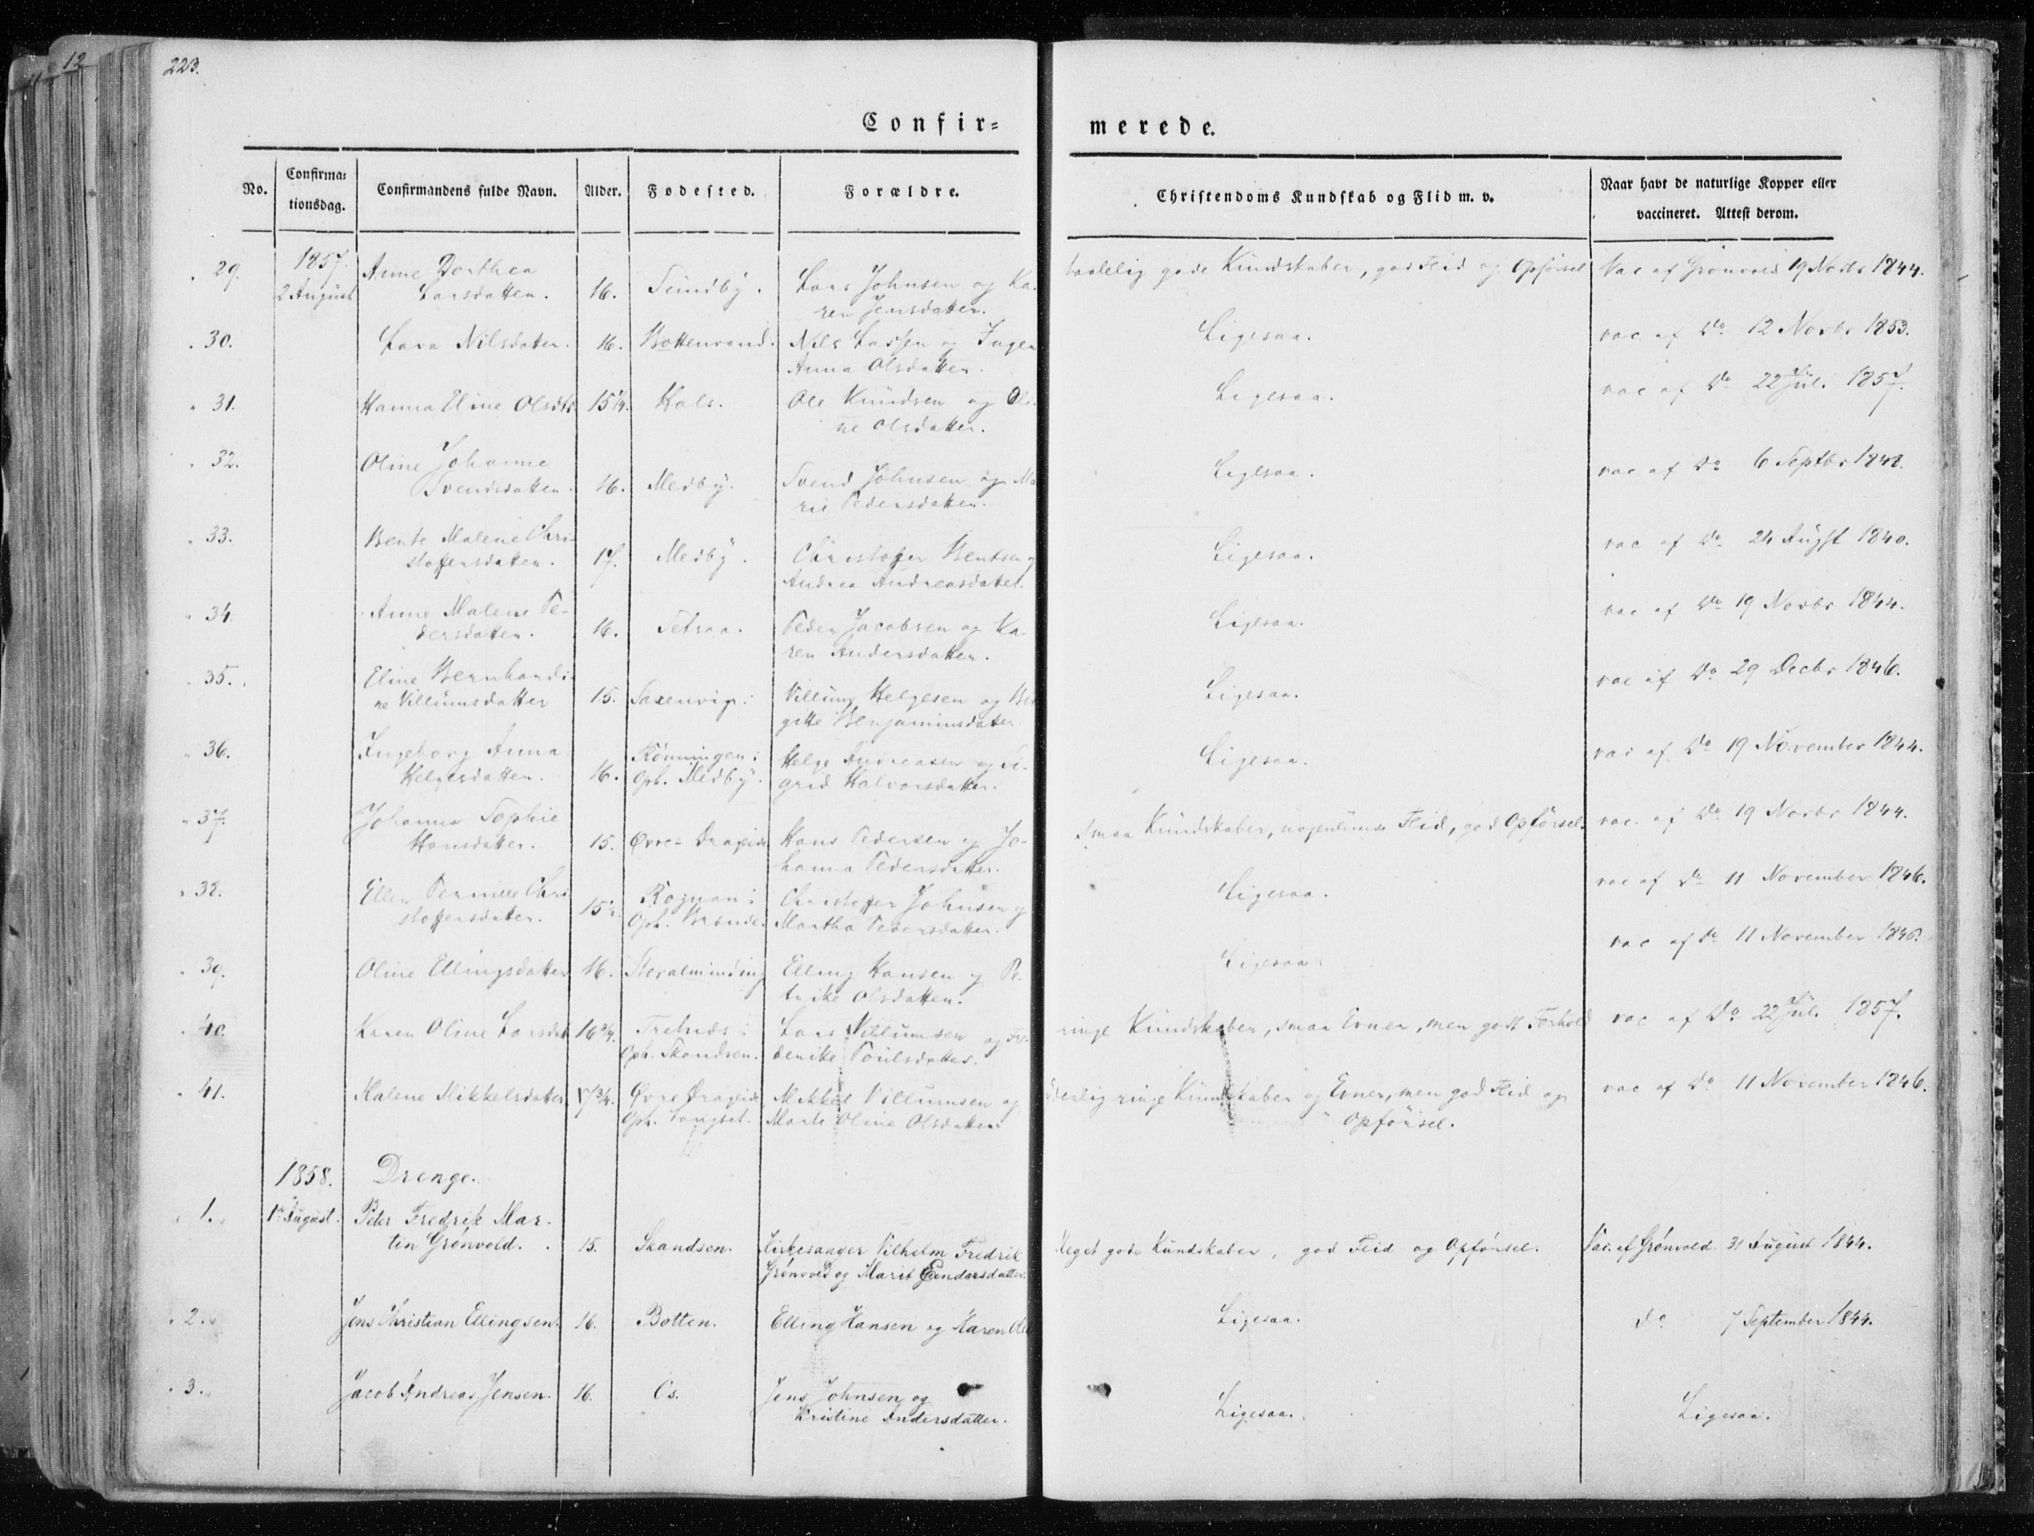 12
223.
Confir= merede.
No. Confirma= tionsdag. Confirmandens fulde Navn. Alder. Fodested. Forældre. Christendoms Kundskab og Flid m. v. Naar havt de naturlige Kopper eller vaccineret. Attest derom.
29. 1857. Anne Dorthea Lars Johnsen og Ka- gode Kundskaber, god Flid og Opførsel Vac af Grønvold 19 Novbr 1844.
2 August Larsdatter. 16. ren Jensdatter.
30. Nilsdatter. 16. Bottenvand. Nils Larssen og Inge Ligesaa. vac af Do 12 Novbr 1853.
Anna Olsdatter.
31. Hanna Eline Olsdtr 15 1/4. Hals. Ole Knudsen og Oli- Ligesaa. vac af Do 22 Juli 1857.
ne Olsdatter.
32. Oline Johanna
Svendsdatter. 16. Medby. Svend Johnsen og Ma- Ligesaa. vac af Do 6 Septbr 1848.
rie Pedersdatter.
33. Bente Malene Chri-
stoffersdatter. 17. Medby. Christofer Bentsen og Ligesaa. vac af Do 24 Augst 1840.
Andrea Andreasdatter.
34. Anne Malene Pe-
dersdatter. 16. Setsaa. Peder Jacobsen og Ka- Ligesaa. vac af Do 19 Novbr 1844.
ren Andersdatter.
35. Eline Bernhardi-
ne Villumsdatter 15. Saxenvig: Villum Helgesen og Bir- Ligesaa. vac af Do 29 Decbr 1846.
gitte Benjaminsdatter
36. Ingeborg Anna Rønningen: Helge Andreasen og Si- Ligesaa. vac af Do 19 November 1844.
Helgesdatter. 16. Oph. Medby. grid Halvorsdatter.
37. Johanna Sophie
Hansdatter. 15. Øvre Drageid Hans Pedersen og Jo- smaa Kundskaber, nogenlunde Flid, god Opførsel. vac af Do 19 Novbr 1844.
hanna Pedersdatter.
38. Ellen Pernille Chri- Rognan: Christoffer Johnsen og Ligesaa. vac af Do 11 November 1846.
stoffersdatter. 15 1/2. Oph. Martha Pedersdatter.
39. Oline Ellingsdatter 16. Storalminding Elling Hansen og Pe- Ligesaa. vac af Do 11 November 1846.
trike Olsdatter.
40. Karen Oline Larsdat 16 3/4. Lars Villumsen og Fre- ringe Kundskaber, smaa Evner, men godt Forhold vac af Do 22 Juli 1857.
Oph. Skandsen. derike Poulsdatter.
41. Malene Mikkelsdatter 17 3/4. Øvre Drageid Mikkel Villumsen og ringe Kundskaber og Evner, men god Flid og vac af Do 11 November 1846.
Oph. Langset. Marte Oline Olsdatter. Opførsel.
1858. Drenge.
1. 1ste August. Peter Fredrik Mar-
tin Grønvold. 15. Skandsen. Kirkesanger Vilhelm Fredrik Meget gode Kundskaber, god Flid og Opførsel. Vac. af Grønvold 31 August 1844.
Grønvold og Marit Endersdatter
2. Jens Christian Ellingsen. 16. Botten. Elling Hansen og Karen Ols Ligesaa. do 7 September 1844.
3. Jacob Andreas Jensen. 16. Os. Jens Johnsen og Ligesaa. Ligesaa.
Kristine Andersdatter.